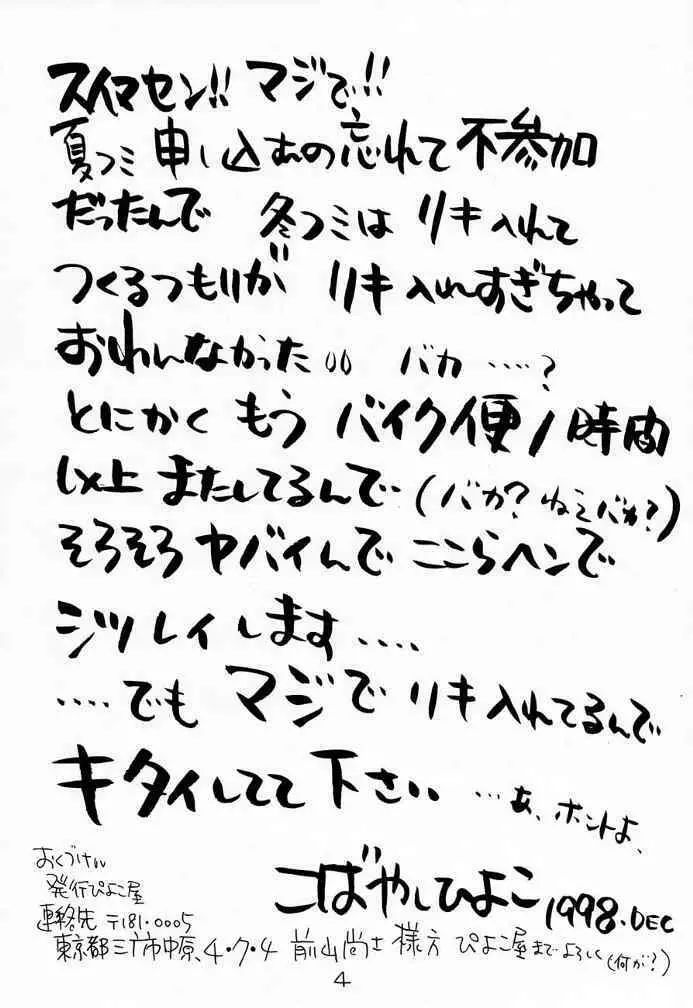 スイマセン!! マジで!!
夏コミ 申し込むの忘れて 不参加
だったんで 冬コミは リキ入れて
つくるつもりが リキ入れすぎちゃって
おわんなかった バカ ‥‥?
とにかく もう バイク便1時間
以上 またしてるんで (バカ? ねえバカ?)
そろそろ ヤバイんで ここらヘンで
シツレイします ‥‥
‥‥でも マジで リキ入れてるんで
キタイしてて 下さい …あ、ホントよ、
こばやしひよこ 1998.DEC
おくづけ
発行ぴよこ屋
連絡先 〒181-0005
東京都三市中原、4・7・4 前山尚士 様方 ぴよこ屋までよろしく(何が?)
4